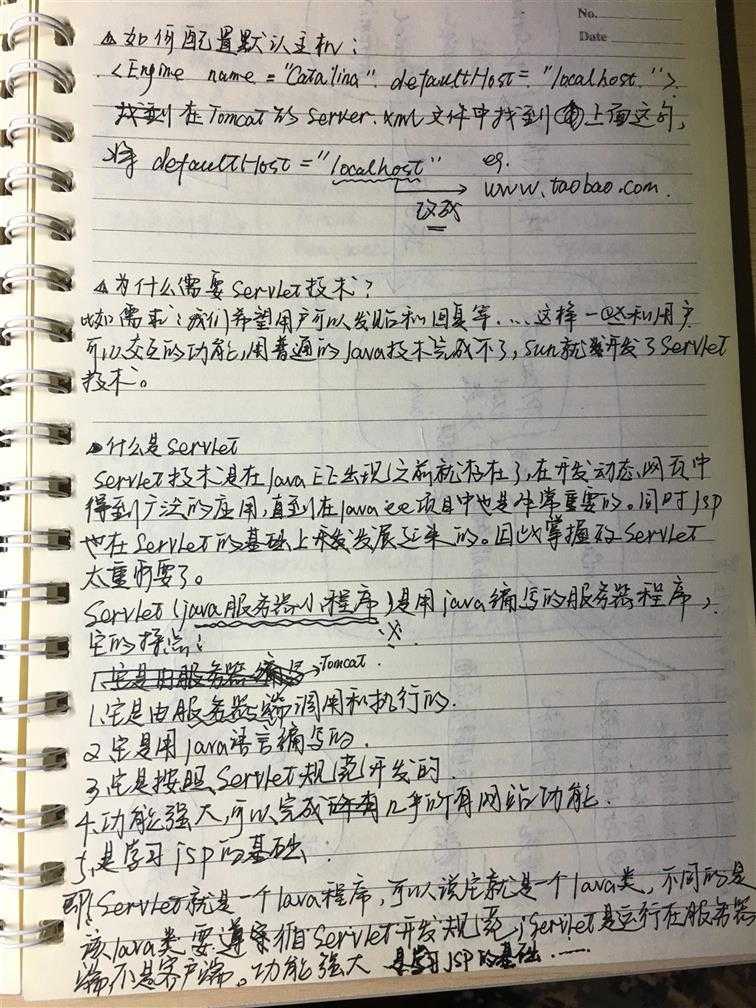 No.
Date
△如何配置默认主机：
<Engine name="Catalina" defaultHost="localhost">.
找到在Tomcat的server.xml文件中找到上面这句，
将 defaultHost="localhost" eg.
改成 www.taobao.com.
△为什么需要Servlet技术？
比如需求：我们希望用户可以发贴和回复等....这样一些和用户
可以交互的功能，用普通的java技术完成不了，sun就开发了Servlet
技术。
△什么是Servlet
Servlet技术是在java EE出现之前就存在了，在开发动态网页中
得到广泛的应用，直到在java ee项目中也是非常重要的。同时jsp
也在Servlet的基础上开发发展起来的。因此掌握好Servlet
太重要了。
Servlet(java服务器小程序)是用java编写的服务器程序，
它的特点：
1.它是由服务器编写 Tomcat.
1.它是由服务器端调用和执行的.
2.它是用java语言编写的.
3.它是按照Servlet规范开发的.
4.功能强大，可以完成几乎所有网站功能.
5.是学习jsp的基础.
即：Servlet就是一个java程序，可以说它就是一个java类，不同的是
该java类要遵守Servlet开发规范，Servlet是运行在服务器
端不是客户端。功能强大 是学习jsp的基础......